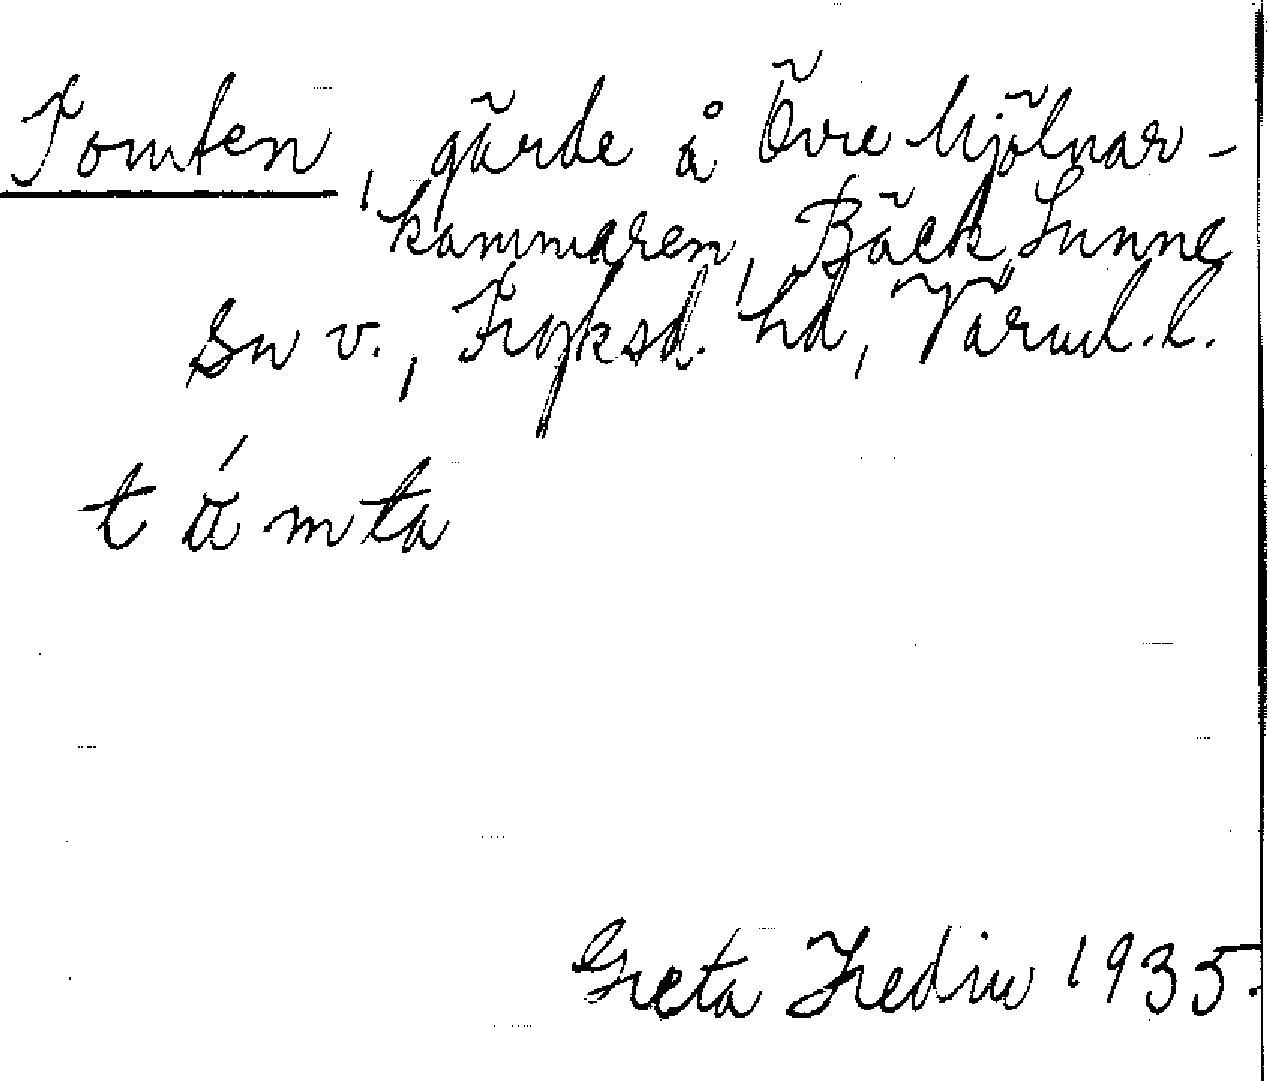 Tomten, gärde å Övre Mjölnar-
kammaren, Bäck Sunne
sn v., Fryksd. hd, Värml. l.
tɑ́mta
Greta Hedin 1935.